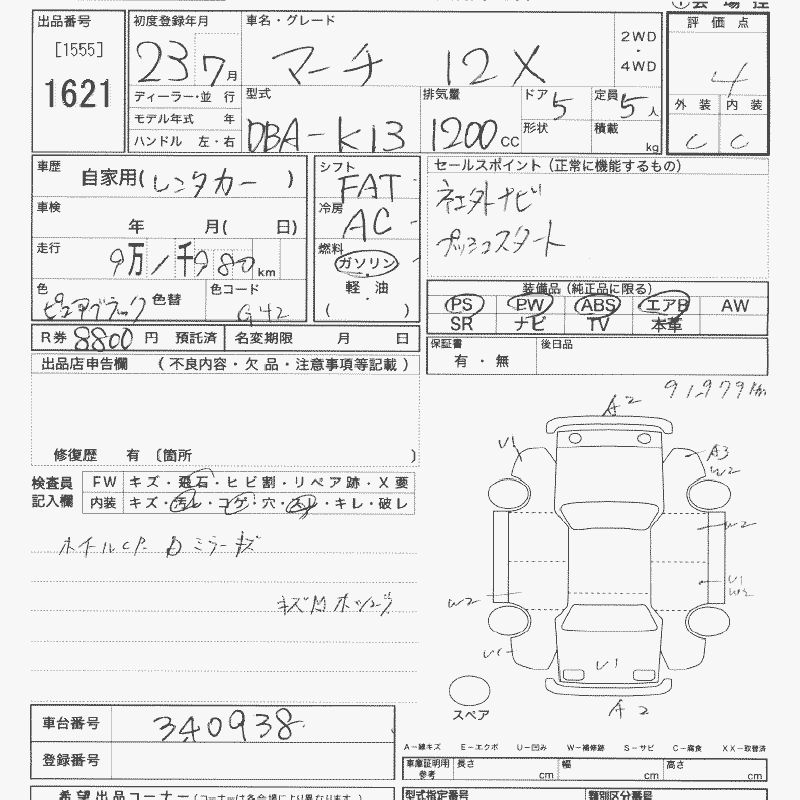 出品番号
[1555]
1621
初度登録年月
23 7月
車名・グレード
マーチ 12X
2WD
・
4WD
評価点
4
外装 内装
C C
ディーラー・並行
モデル年式 年
ハンドル 左・右
型式
DBA-K13
排気量
1200cc
ドア 5
形状
定員 5人
積載 kg
車歴
自家用(レンタカー)
車検
年 月( 日)
走行
9万1千980km
色
ピュアブラック
色替
色コード
G42
シフト
FAT
冷房
AC
燃料
ガソリン
軽油
・
( )
セールスポイント(正常に機能するもの)
社外ナビ
プッシュスタート
装備品(純正品に限る)
PS PW ABS エアB AW
SR ナビ TV 本革
保証書
有・無
後日品
R券 8800円 預託済
名変期限 月 日
出品店申告欄 (不良内容・欠品・注意事項等記載)
修復歴 有 〔箇所 〕
検査員
記入欄
FW キズ・飛石・ヒビ割・リペア跡・X要
内装 キズ・汚レ・コゲ・穴・スレ・キレ・破レ
ミラーキズ
91,979km
A2
U1
A3
W2
W2
U1
W2
W2
U1
A2
スペア
車台番号
340938
登録番号
A-線キズ E-エクボ U-凹み W-補修跡 S-サビ C-腐食 XX-取替済
車庫証明用
参考
長さ cm
幅 cm
高さ cm
希望出品コーナー(コーナーは各会場により異なります。)
型式指定番号
類別区分番号